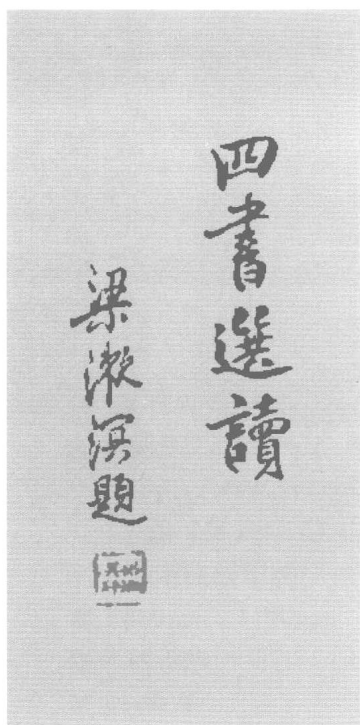 四書選讀
梁漱溟題